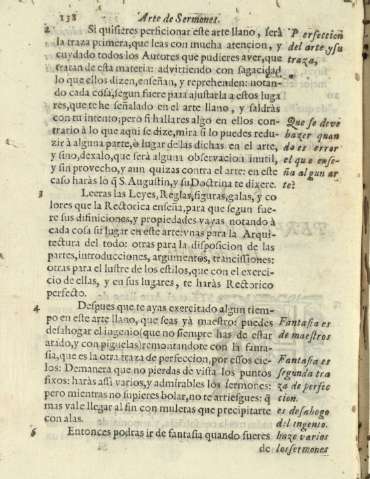 138 Arte de Sermones.
2 Si quisieres perficionar este arte llano, será
la traza primera, que leas con mucha atencion, y
cuydado todos los Autores que pudieres aver, que
tratan de esta materia: advirtiendo con sagacidad
lo que ellos dizen, enseñan, y reprehenden: notan-
do cada cosa, segun fuere para ajustarla a estos luga
res, que te he señalado en el arte llano, y saldrás
con tu intento; pero si hallares algo en ellos con-
trario à lo que aqui se dize, mira si lo puedes redu-
zir à alguna parte, ò lugar de las dichas en el arte,
y sino, dexalo, que será alguna observacion inutil,
y sin provecho, y aun quizas contra el arte: en este
caso haràs lo q̃ S. Augustin, y su Doctrina te dixere.
3 Leeras las Leyes, Reglas, figuras, galas, y co
lores que la Rectorica enseña, para que segun fue-
re sus difiniciones, y propiedades vayas notando à
cada cosa su lugar en este arte: vnas para la Arqui-
tectura del todo: otras para la disposicion de las
partes, introducciones, argumentos, trancissiones:
otras para el lustre de los estilos, que con el exerci-
cio de ellas, y en sus lugares, te haràs Rectorico
perfecto.
4 Despues que te ayas exercitado algun tiem-
po en este arte llano, que seas yà maestro; puedes
desahogar el ingenio (que no siempre has de estar
atado, y con piguelas) remontandote con la fanta-
sia, que es la otra traza de perfeccion, por essos cie-
los: De manera que no pierdas de vista los puntos
fixos: haràs assi varios, y admirables los sermones:
pero mientras no supieres bolar, no te arriesgues: q̃
mas vale llegar al fin con muletas que precipitarte
con alas.
6 Entonces podras ir de fantasia quando fueres
de
Perfeccion
del arte, y su
traza,
Que se deve
hazer quan
do es error
el que ense-
ña algun ar
te?
Fantasia es
de maestros
Fantasia es
segunda tra
za de perfec
cion.
es desahogo
del ingenio.
haze varios
los sermones